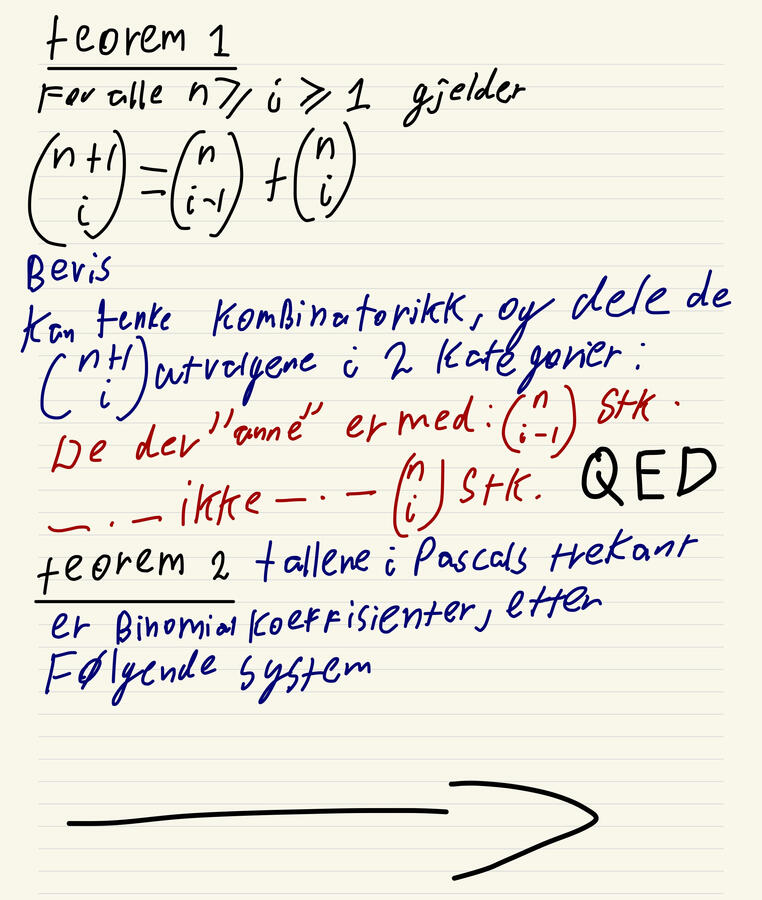 teorem 1
For alle n ≥ i ≥ 1 gjelder
(n+1 over i) = (n over i-1) + (n over i)
Bevis
Kan tenke kombinatorikk, og dele de
(n+1 over i) utvalgene i 2 kategorier:
De der "anne" er med: (n over i-1) stk.
— . — ikke — . — (n over i) stk. QED
teorem 2 tallene i Pascals trekant
er Binomialkoeffisienter, etter
Følgende system